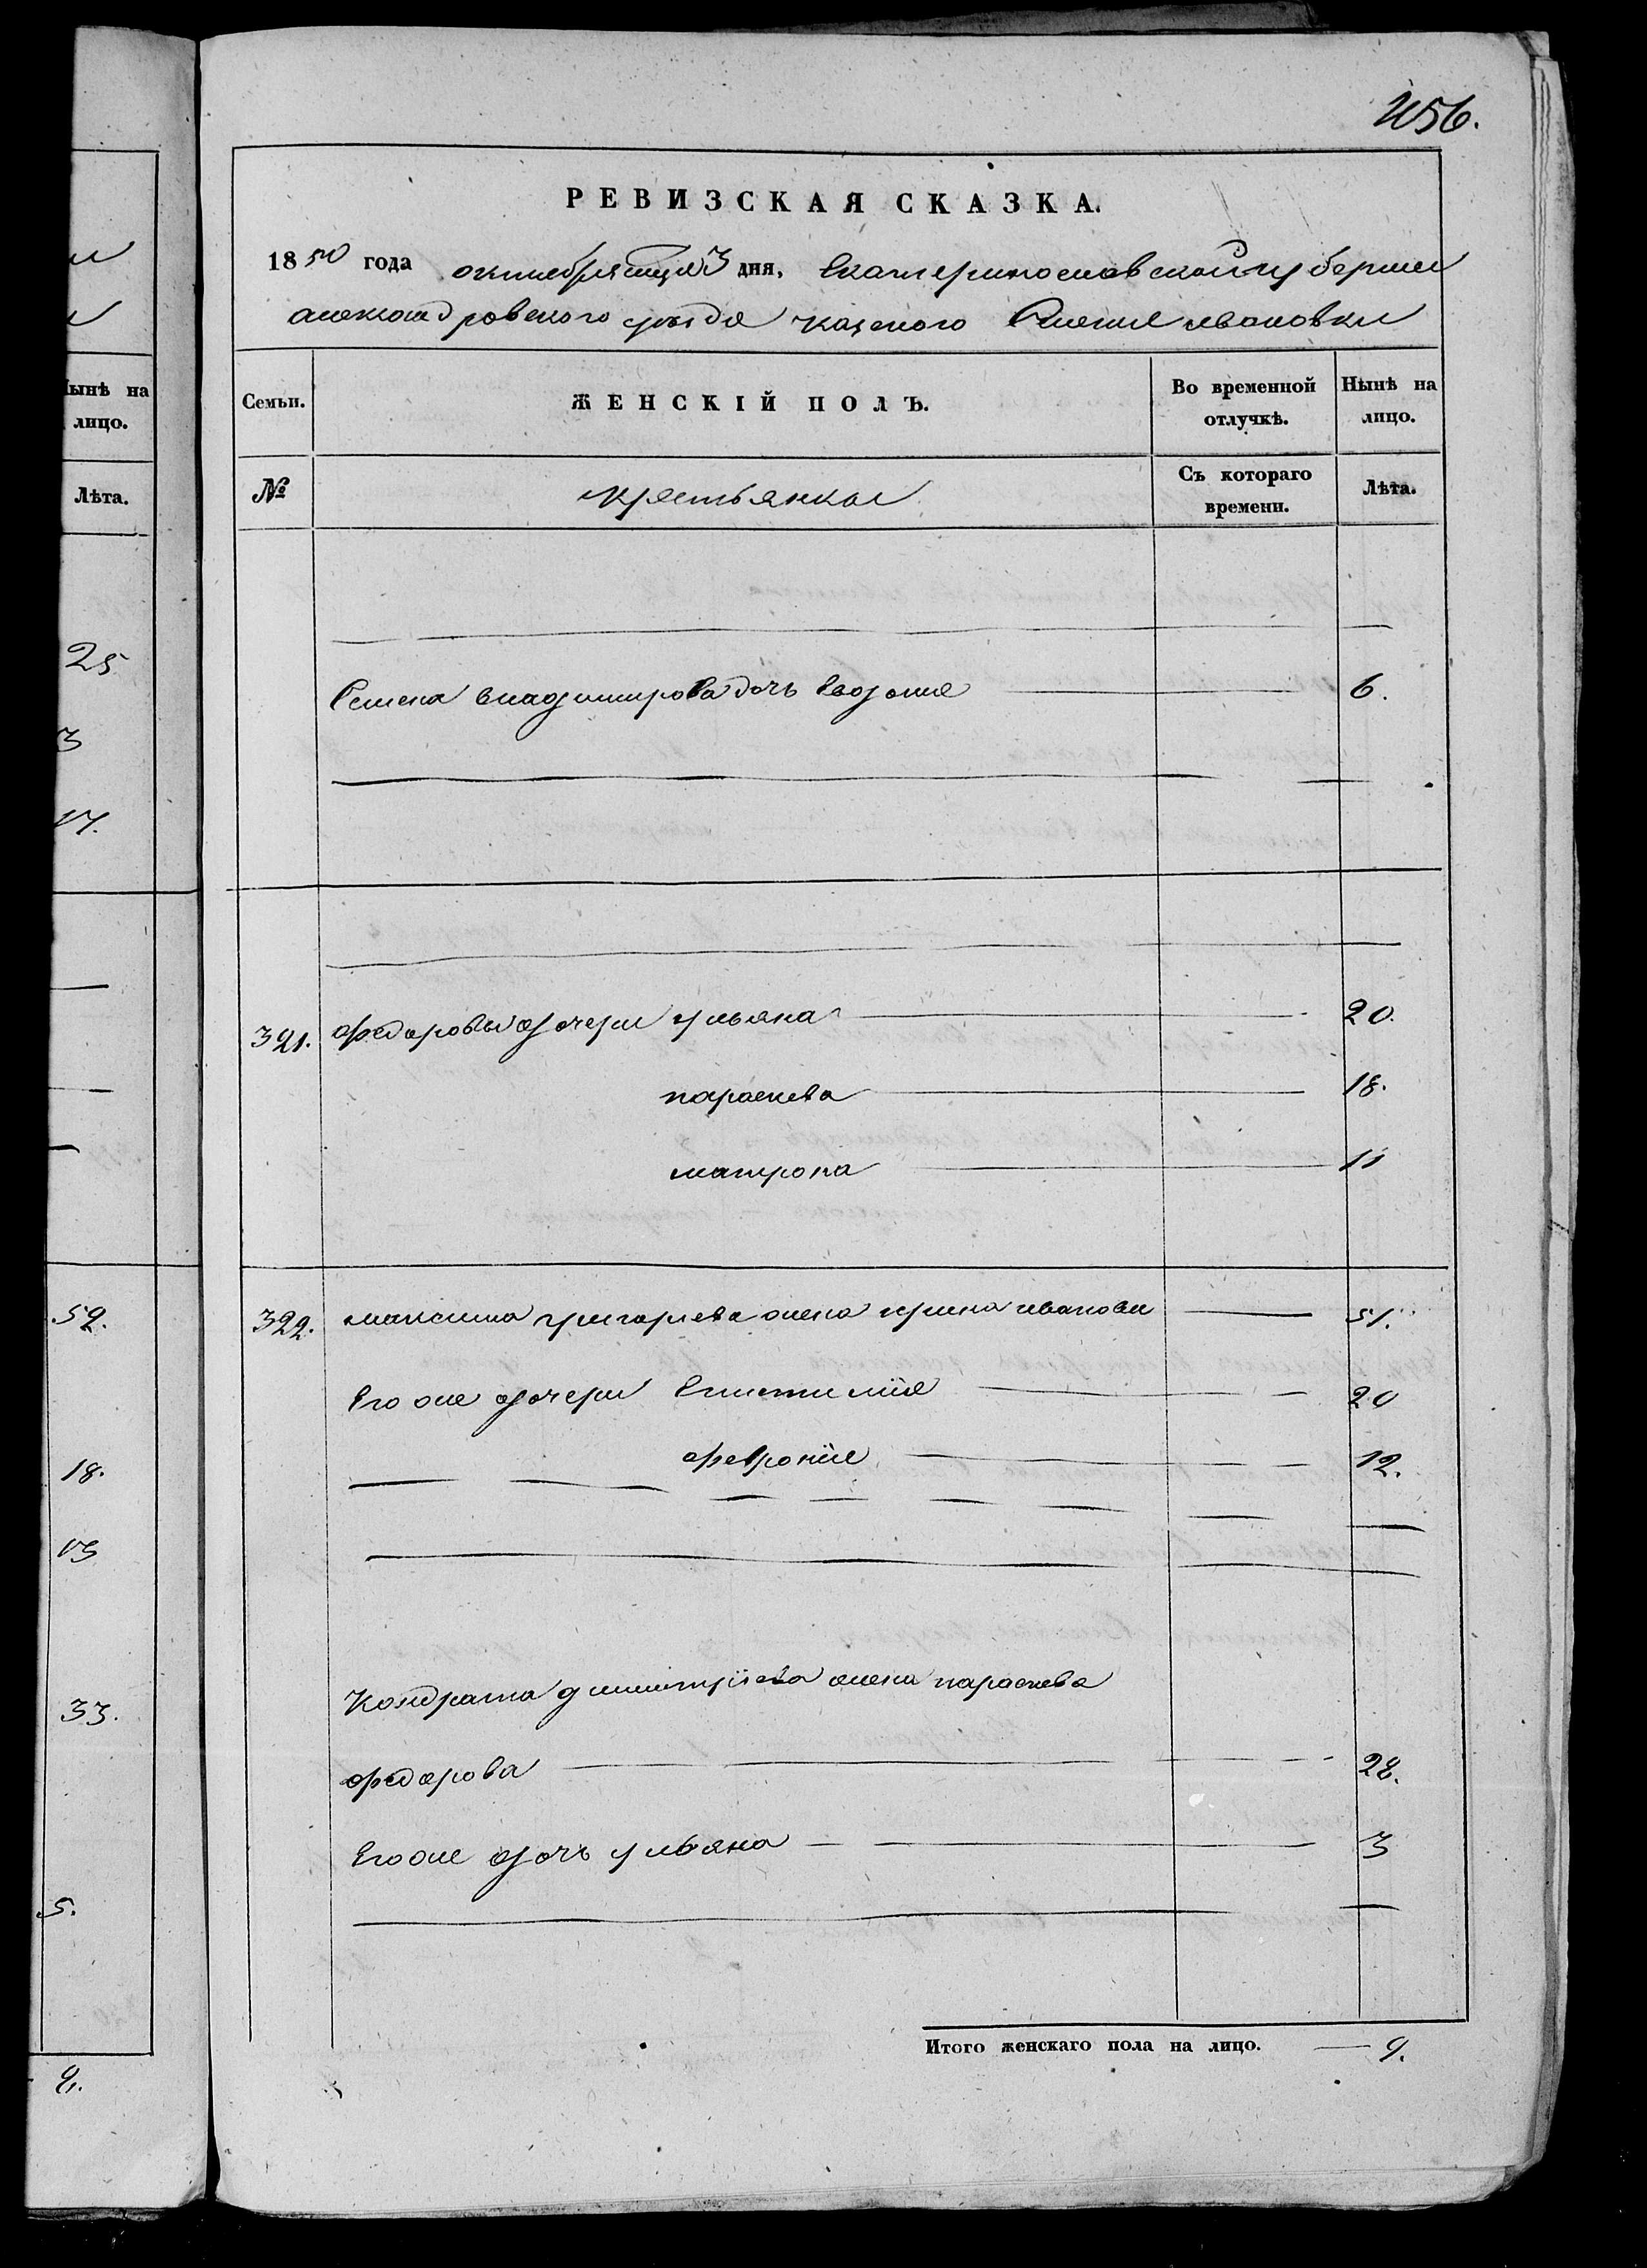 456.
РЕВИЗСКАЯ СКАЗКА.
1850 года октября мца 3 дня, Екатеринославской губернии
александровского уезда казеного Селения ивановки
Семьи. ЖЕНСКІЙ ПОЛЪ. Во временной отлучкѣ. Нынѣ на лицо.
№ крестьянки Съ котораго времени. Лѣта.
Семена владимирова дочь Евдокия 6.
321. федоровы дочери ульяна 20.
параскева 18.
матрона 11
322. максима григорьева жена ирина иванова 51.
Его же дочери Епистимия 20
феврония 12.
Кондрата димитріева жена параскева
федорова 28.
Его же дочь ульяна 3
Итого женскаго пола на лицо. 9.
ынѣ на
лицо.
Лѣта.
25
3
17.
52.
18.
13
33.
5.
9.